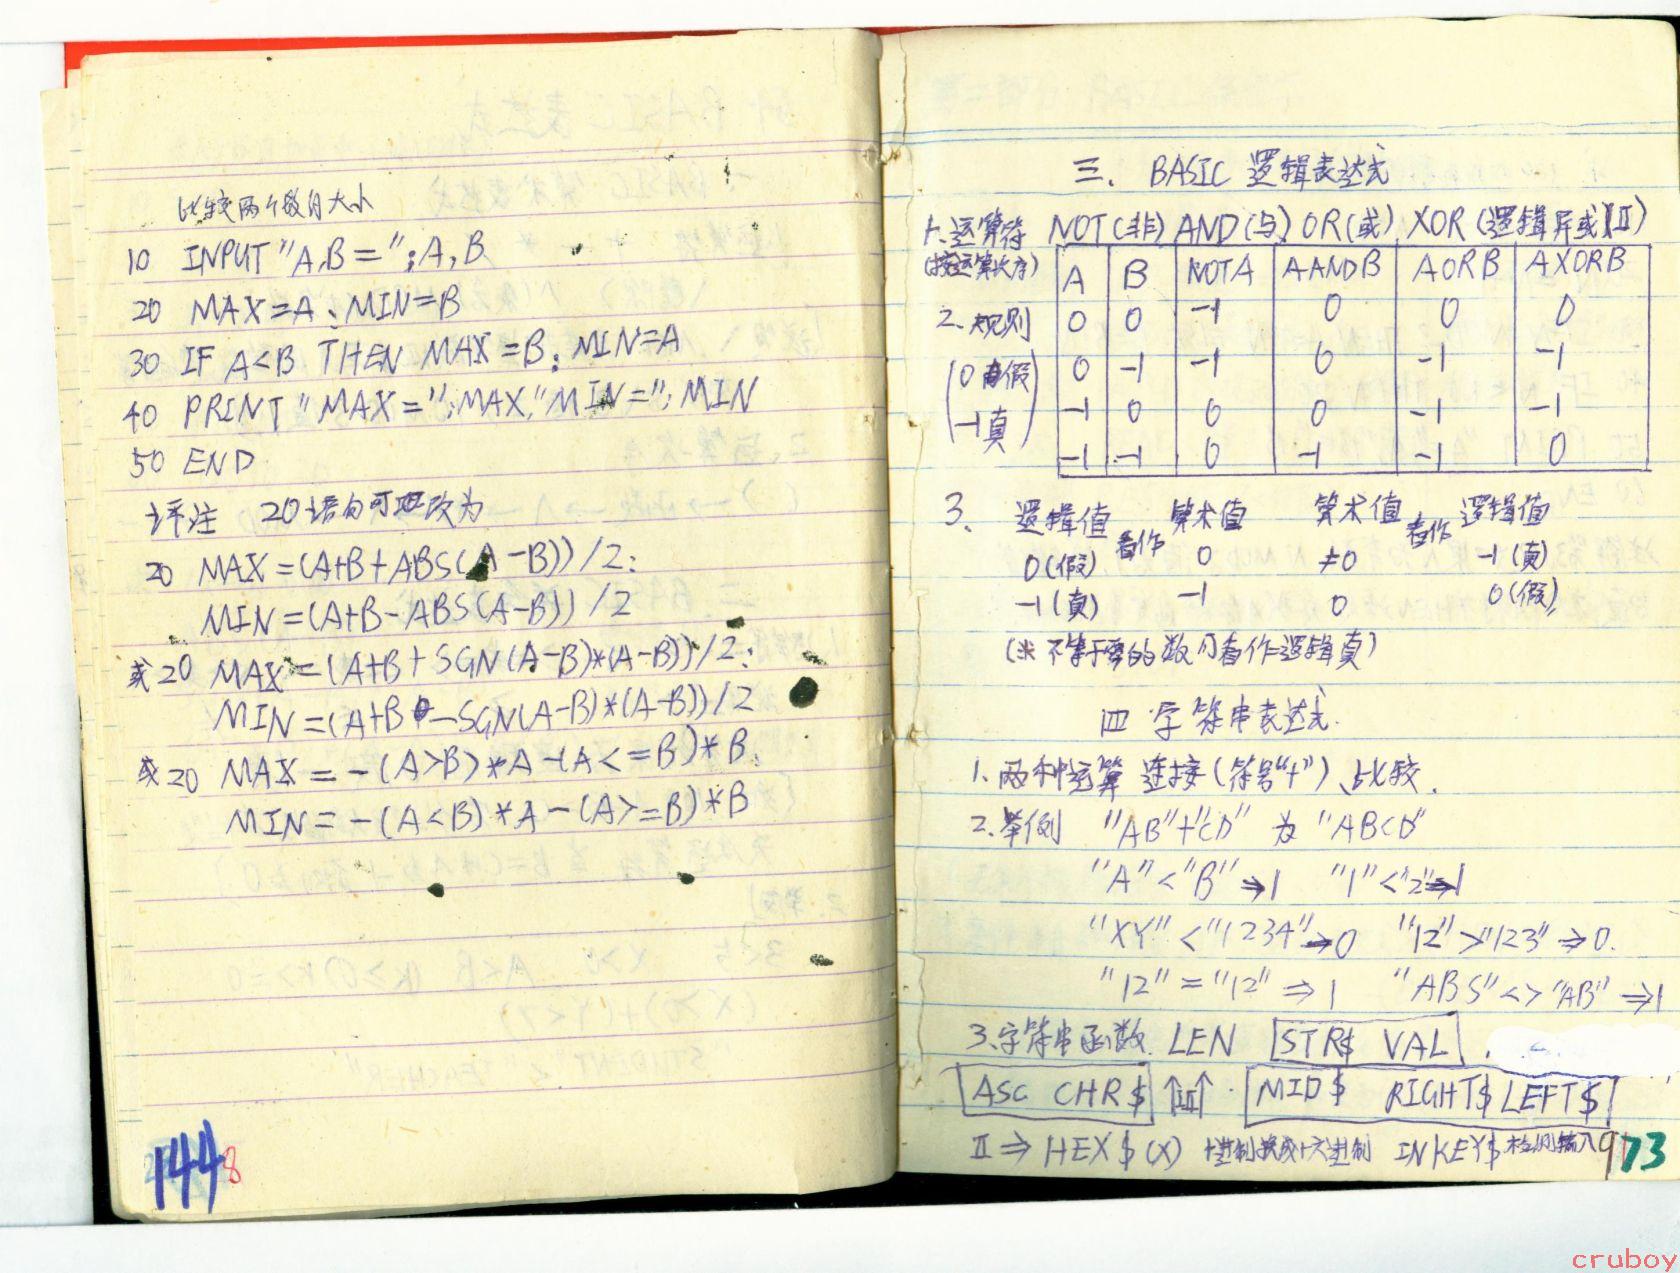 比较两个数的大小
10 INPUT "A,B=";A,B
20 MAX=A:MIN=B
30 IF A<B THEN MAX=B:MIN=A
40 PRINT "MAX=";MAX,"MIN=";MIN
50 END
评注 20语句可改为
20 MAX=(A+B+ABS(A-B))/2:
MIN=(A+B-ABS(A-B))/2
或20 MAX=(A+B+SGN(A-B)*(A-B))/2:
MIN=(A+B-SGN(A-B)*(A-B))/2
或20 MAX=-(A>B)*A-(A<=B)*B:
MIN=-(A<B)*A-(A>=B)*B
144
8
三、BASIC 逻辑表达式
1.运算符 NOT(非) AND(与) OR(或) XOR(逻辑异或)(II)
(按运算次序)
A B NOTA AANDB AORB AXORB
2、规则 0 0 -1 0 0 0
(0 假 0 -1 -1 0 -1 -1
-1真) -1 0 0 0 -1 -1
-1 -1 0 -1 -1 0
3、 逻辑值 看作 算术值 算术值 看作 逻辑值
0(假) 0 ≠0 -1(真)
-1(真) -1 0 0(假)
(※不等于零的数可看作逻辑真)
四 字符串表达式
1、两种运算 连接(符号"+")、比较.
2.举例 "AB"+"CD" 为 "ABCD"
"A"<"B"⇒1 "1"<"2"⇒1
"XY"<"1234"⇒0 "12">"123"⇒0.
"12"="12"⇒1 "ABS"<>"AB"⇒1
3、字符串函数 LEN STR$ VAL
ASC CHR$ ↑II↑ MID$ RIGHT$ LEFT$
II⇒HEX$(X) 十进制换成十六进制 INKEY$ 检测输入
973
cruboy